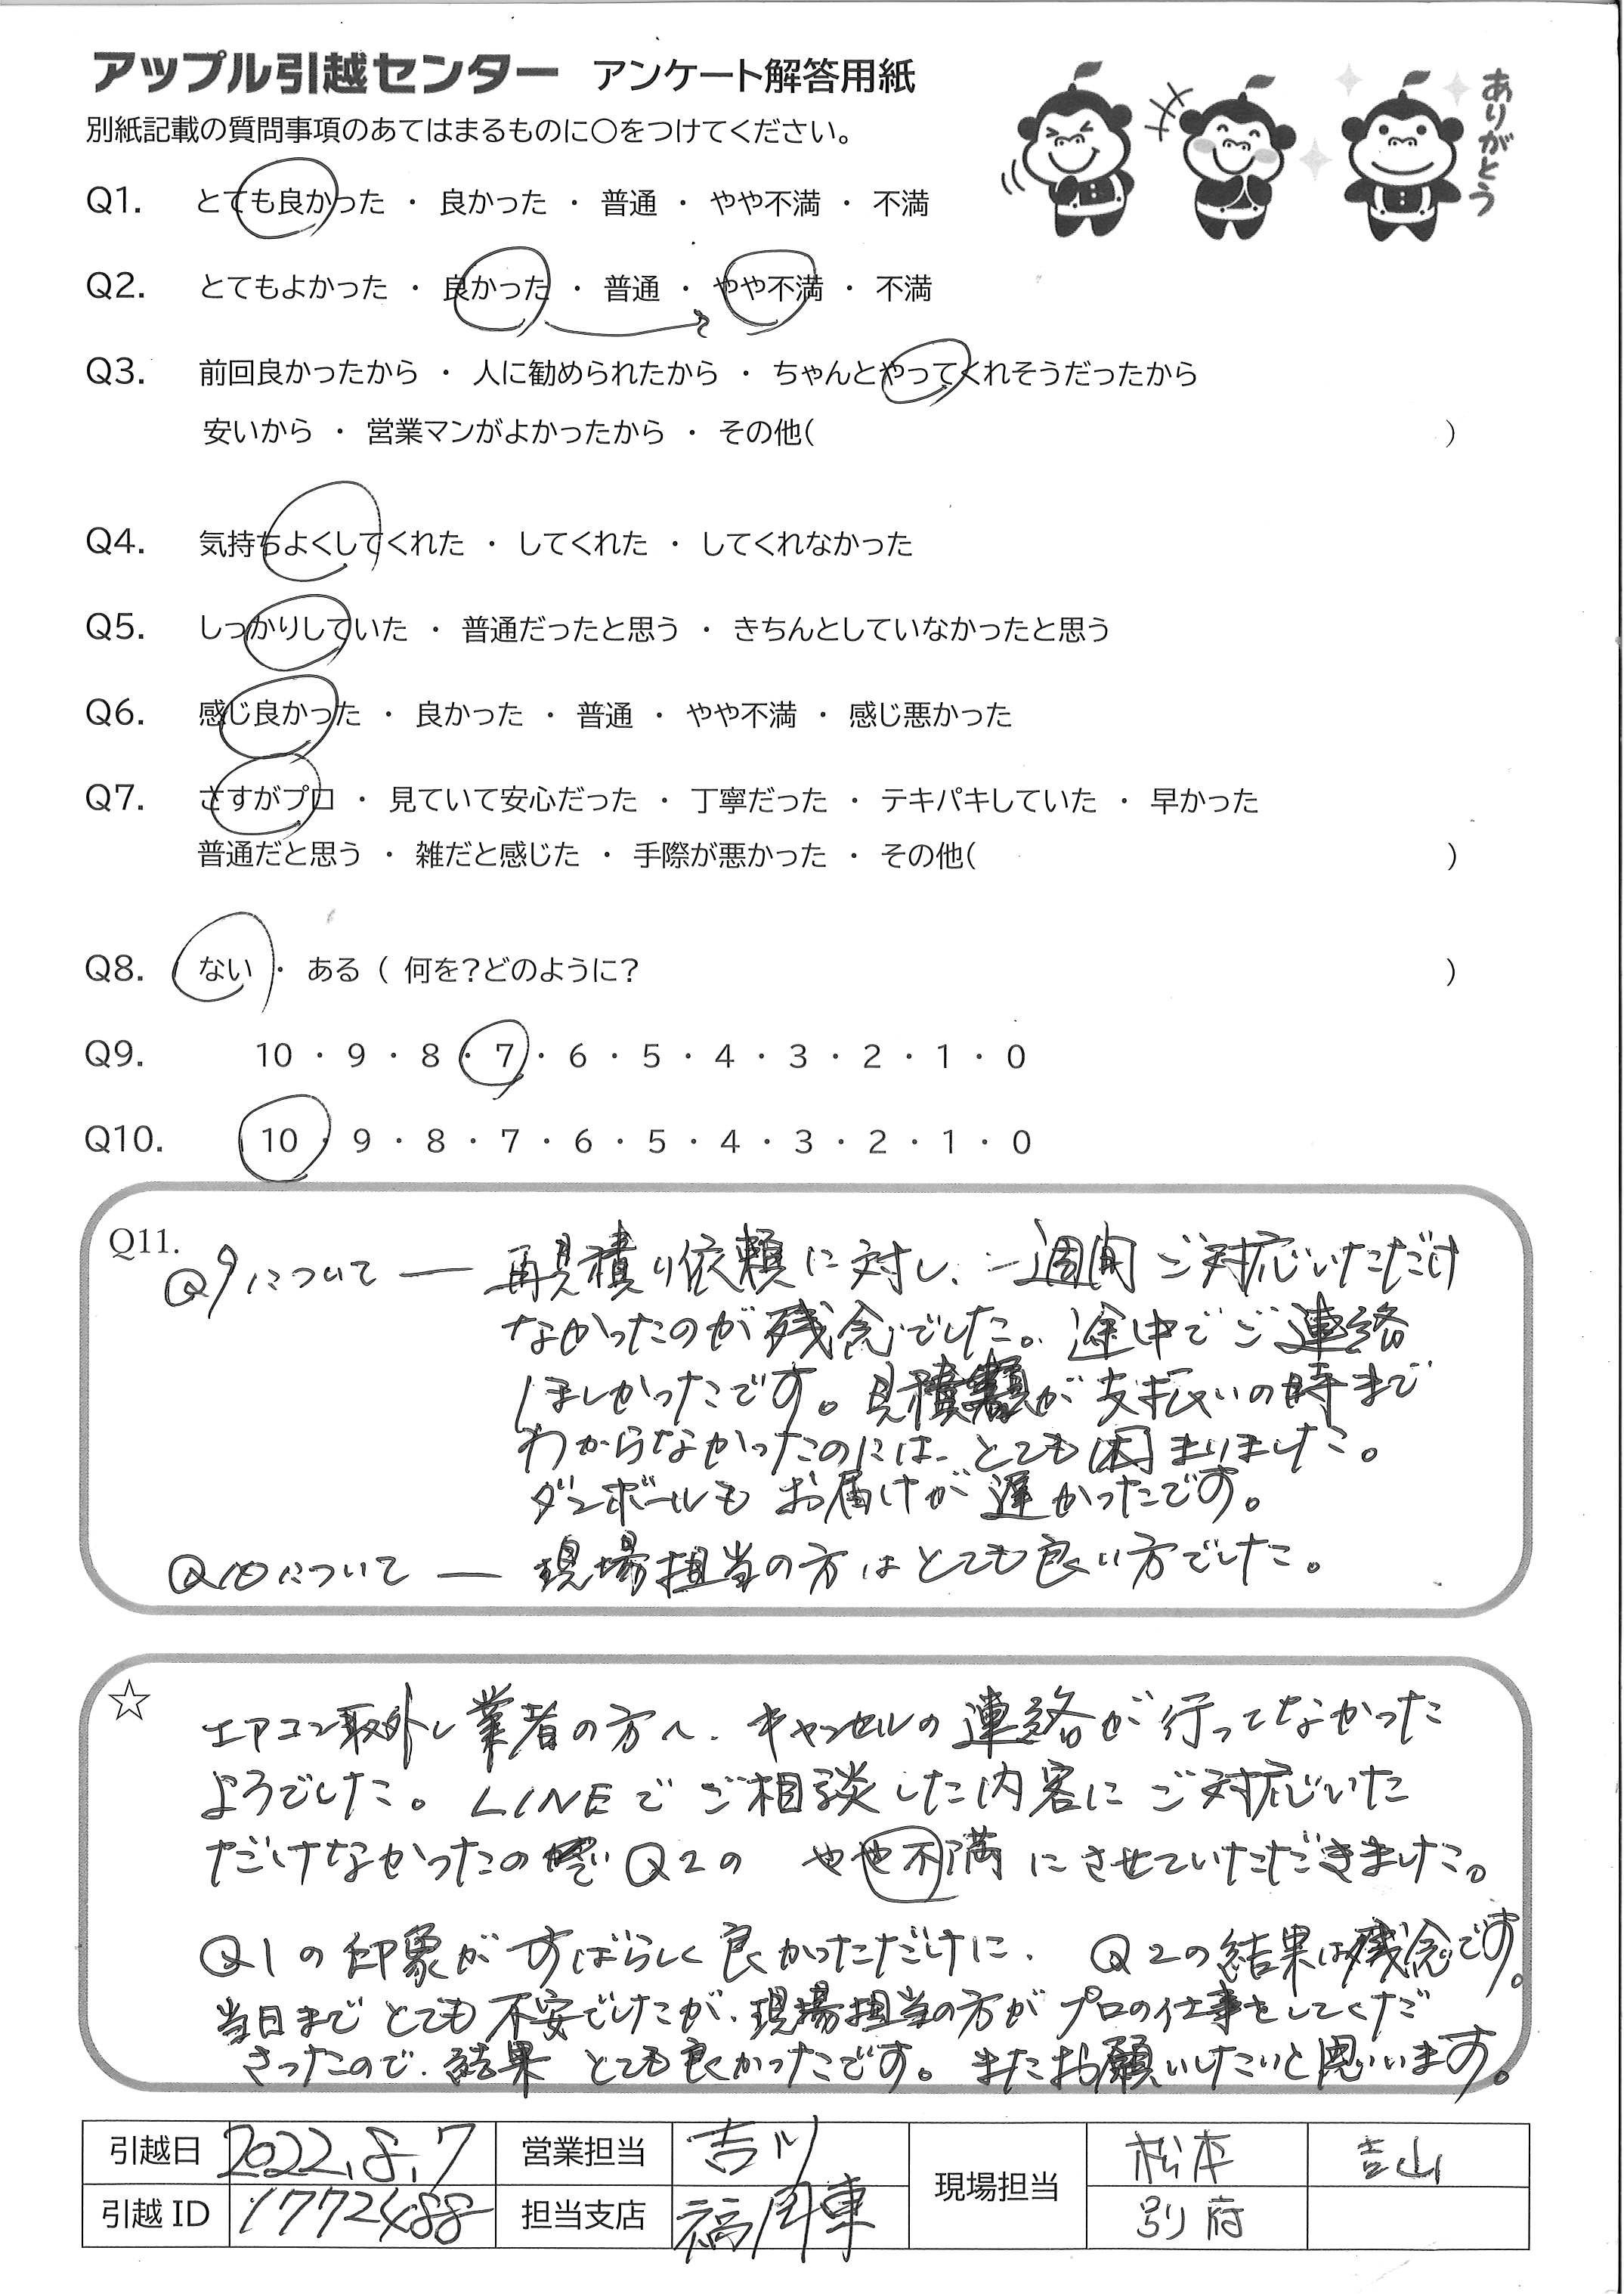 アップル引越センター アンケート解答用紙
別紙記載の質問事項のあてはまるものに○をつけてください。
ありがとう
Q1. とても良かった ・ 良かった ・ 普通 ・ やや不満 ・ 不満
Q2. とてもよかった ・ 良かった ・ 普通 ・ やや不満 ・ 不満
Q3. 前回良かったから ・ 人に勧められたから ・ ちゃんとやってくれそうだったから
安いから ・ 営業マンがよかったから ・ その他( )
Q4. 気持ちよくしてくれた ・ してくれた ・ してくれなかった
Q5. しっかりしていた ・ 普通だったと思う ・ きちんとしていなかったと思う
Q6. 感じ良かった ・ 良かった ・ 普通 ・ やや不満 ・ 感じ悪かった
Q7. さすがプロ ・ 見ていて安心だった ・ 丁寧だった ・ テキパキしていた ・ 早かった
普通だと思う ・ 雑だと感じた ・ 手際が悪かった ・ その他( )
Q8. ない ・ ある ( 何を?どのように? )
Q9. 10 ・ 9 ・ 8 ・ 7 ・ 6 ・ 5 ・ 4 ・ 3 ・ 2 ・ 1 ・ 0
Q10. 10 ・ 9 ・ 8 ・ 7 ・ 6 ・ 5 ・ 4 ・ 3 ・ 2 ・ 1 ・ 0
Q11.
Q9について ― 再見積り依頼に対し、一週間ご対応いただけ
なかったのが残念でした。途中でご連絡
ほしかったです。見積額が支払いの時まで
わからなかったのには、とても困まりました。
ダンボールもお届けが遅かったです。
Q10について ― 現場担当の方はとても良い方でした。
☆ エアコン取外し業者の方へ、キャンセルの連絡が行ってなかった
ようでした。LINEでご相談した内容にご対応いた
だけなかったので Q2の やや不満 にさせていただきました。
Q1の印象がすばらしく良かっただけに、Q2の結果は残念です。
当日までとても不安でしたが、現場担当の方がプロの仕事をしてくだ
さったので、結果 とても良かったです。またお願いしたいと思います。
引越日 2022.8.7 営業担当 吉川 現場担当 松本 吉山
引越ID 1772488 担当支店 福岡東 別府